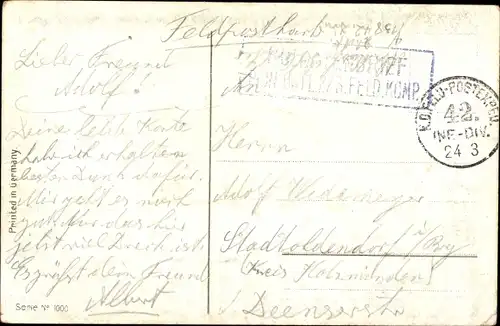 Feldpostkarte
Lieber Freund
Adolf!
Deine letzte Karte
habe ich erhalten
besten Dank dafür.
Mir geht es noch
gut nur das hier
jetzt viel Dreck ist.
Es grüßt dein Freund
Albert
Printed in Germany
Serie Nº 1000
FELD.KOMP.
K.D. FELD-POSTEXPED.
42.
INF-DIV.
24 3
An
Herrn
Adolf Wedemeyer
Stadtoldendorf
(Kreis Holzminden)
Deenserstr